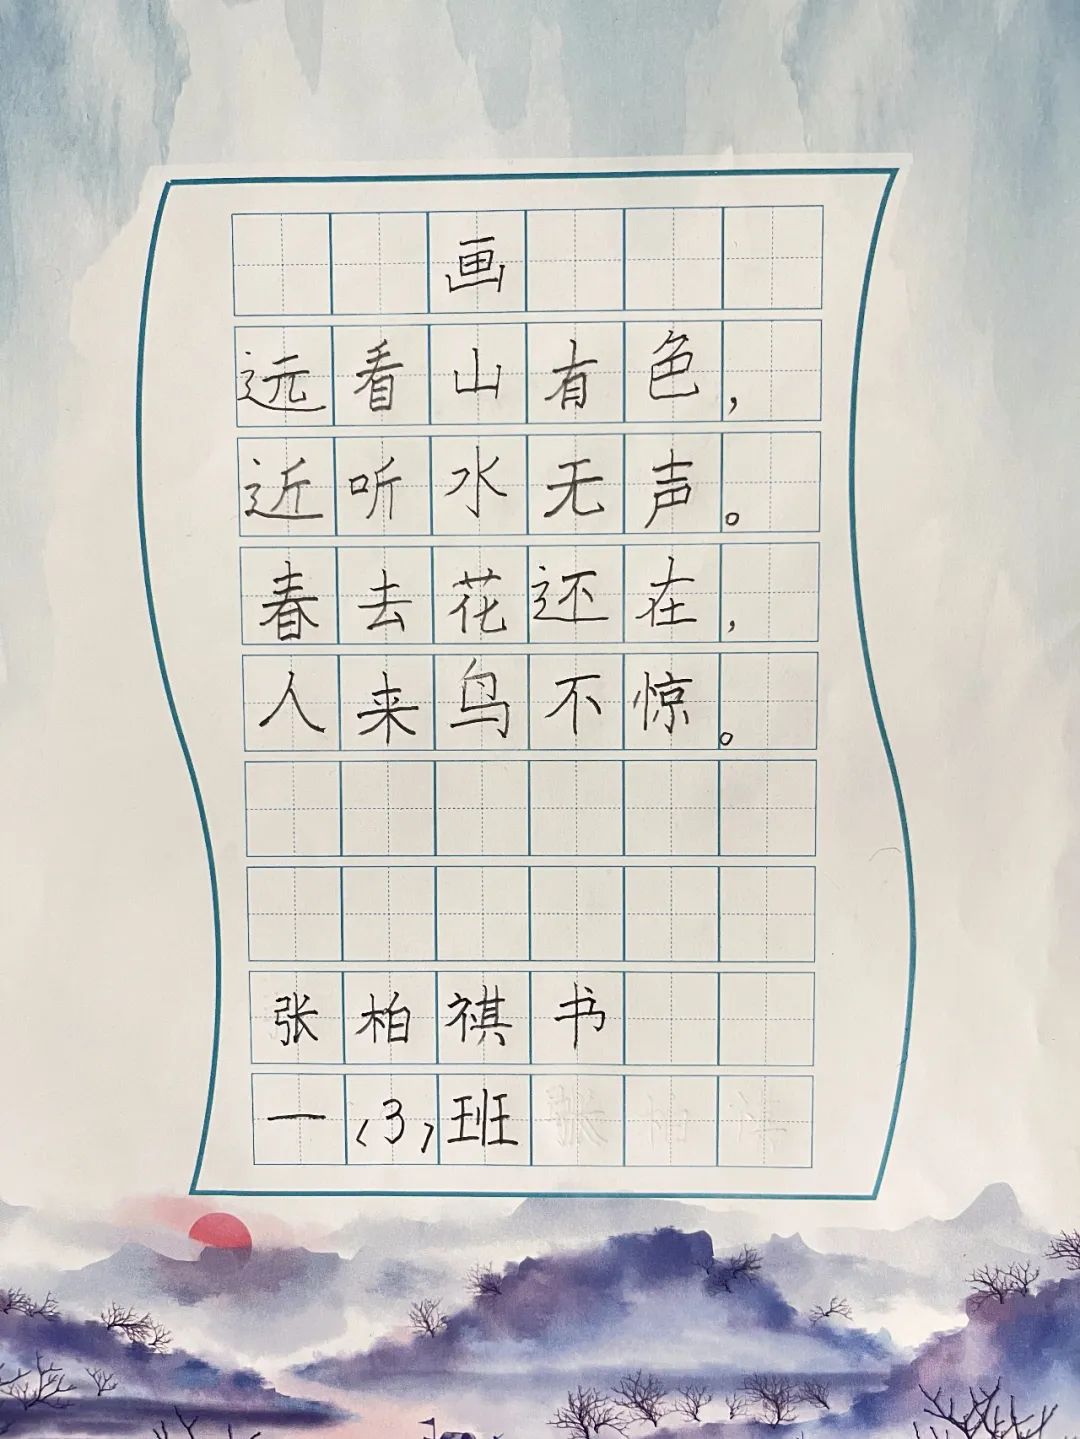 画
远看山有色，
近听水无声。
春去花还在，
人来鸟不惊。
张柏祺书
一（3）班